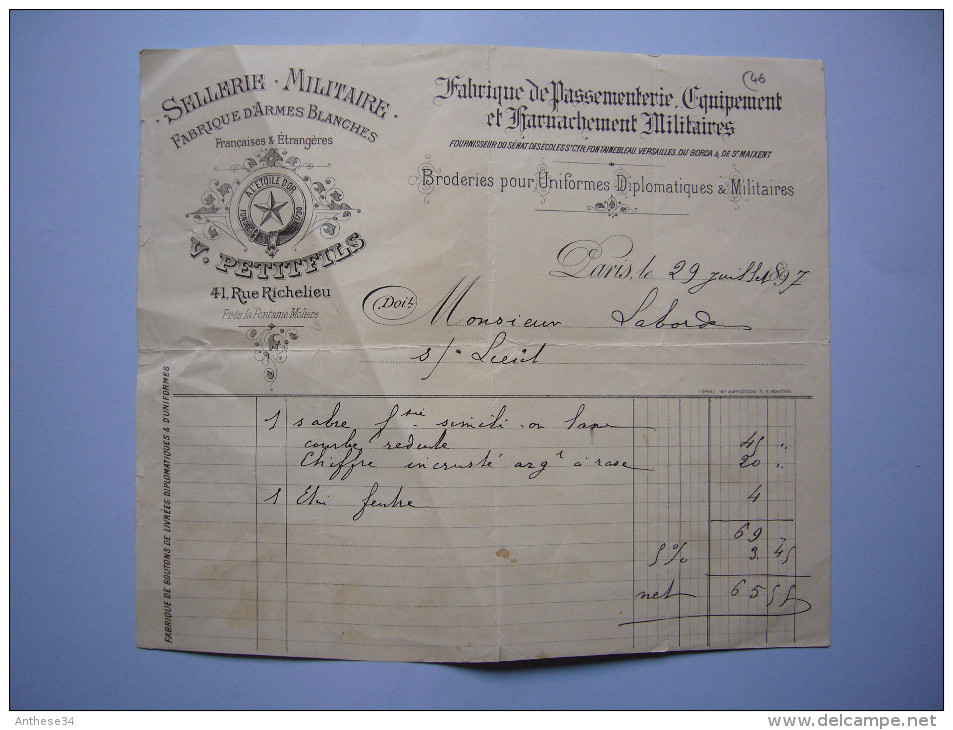 46
SELLERIE · MILITAIRE ·
FABRIQUE D'ARMES BLANCHES
Françaises & Étrangères
A L'ETOILE D'OR
V. PETITFILS
41, Rue Richelieu
Près la Fontaine Molière
Fabrique de Passementerie, Equipement
et Harnachement Militaires
FOURNISSEUR DU SÉNAT DES ECOLES St CYR, FONTAINEBLEAU, VERSAILLES, DU BORDA & DE St MAIXENT
Broderies pour Uniformes Diplomatiques & Militaires
Paris, le 29 juillet 1897
Doit
Monsieur Laborde
s/ Lieut
1 sabre f.sie simili-on lame
courbe réduite 45 "
Chiffre incrusté argt à rase 20 "
1 Etui feutre 4
69 "
5 % 3. 45
net 65 55
FABRIQUE DE BOUTONS DE LIVRÉES DIPLOMATIQUES & D'UNIFORMES
Anthese34
www.delcampe.net